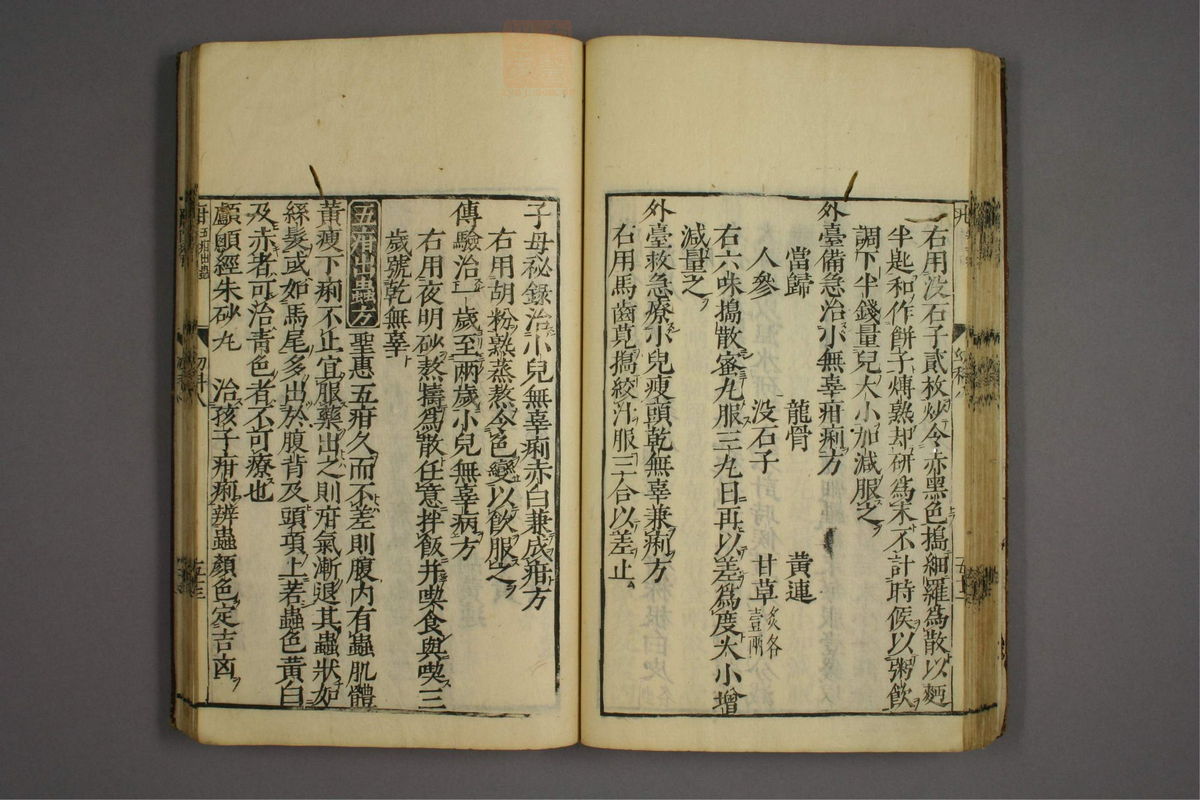 右用没石子貳枚炒令赤黑色搗細羅為散以麪
半匙和作餅子煿熟却研為末不計時候以粥飲
調下半錢量兒大小加減服之
外臺備急治小無辜疳痢方
當歸 龍骨 黃連
人參 没石子 甘草炙各壹兩
右六味搗散蜜丸服三丸日再以差為度大小增
減量之
外臺救急療小兒瘦頭乾無辜兼痢方
右用馬齒莧搗絞汁服三合以差止
子母秘録治小兒無辜痢赤白兼成疳方
右用胡粉熟蒸熬令色變以飲服之
傳驗治一歲至兩歲小兒無辜病方
右用夜明砂熬擣為散任意拌飯并喫食與喫三
歲號乾無辜
五疳出蟲方 聖惠五疳久而不差則腹內有蟲肌體
黃瘦下痢不止宜服藥出之則疳氣漸退其蟲狀如
絲髮或如馬尾多出於腹背及頭項上若蟲色黃白
及赤者可治青色者不可療也
顱顖經朱砂丸 治孩子疳痢辨蟲顏色定吉凶
五疳出蟲
幼科八
五十三